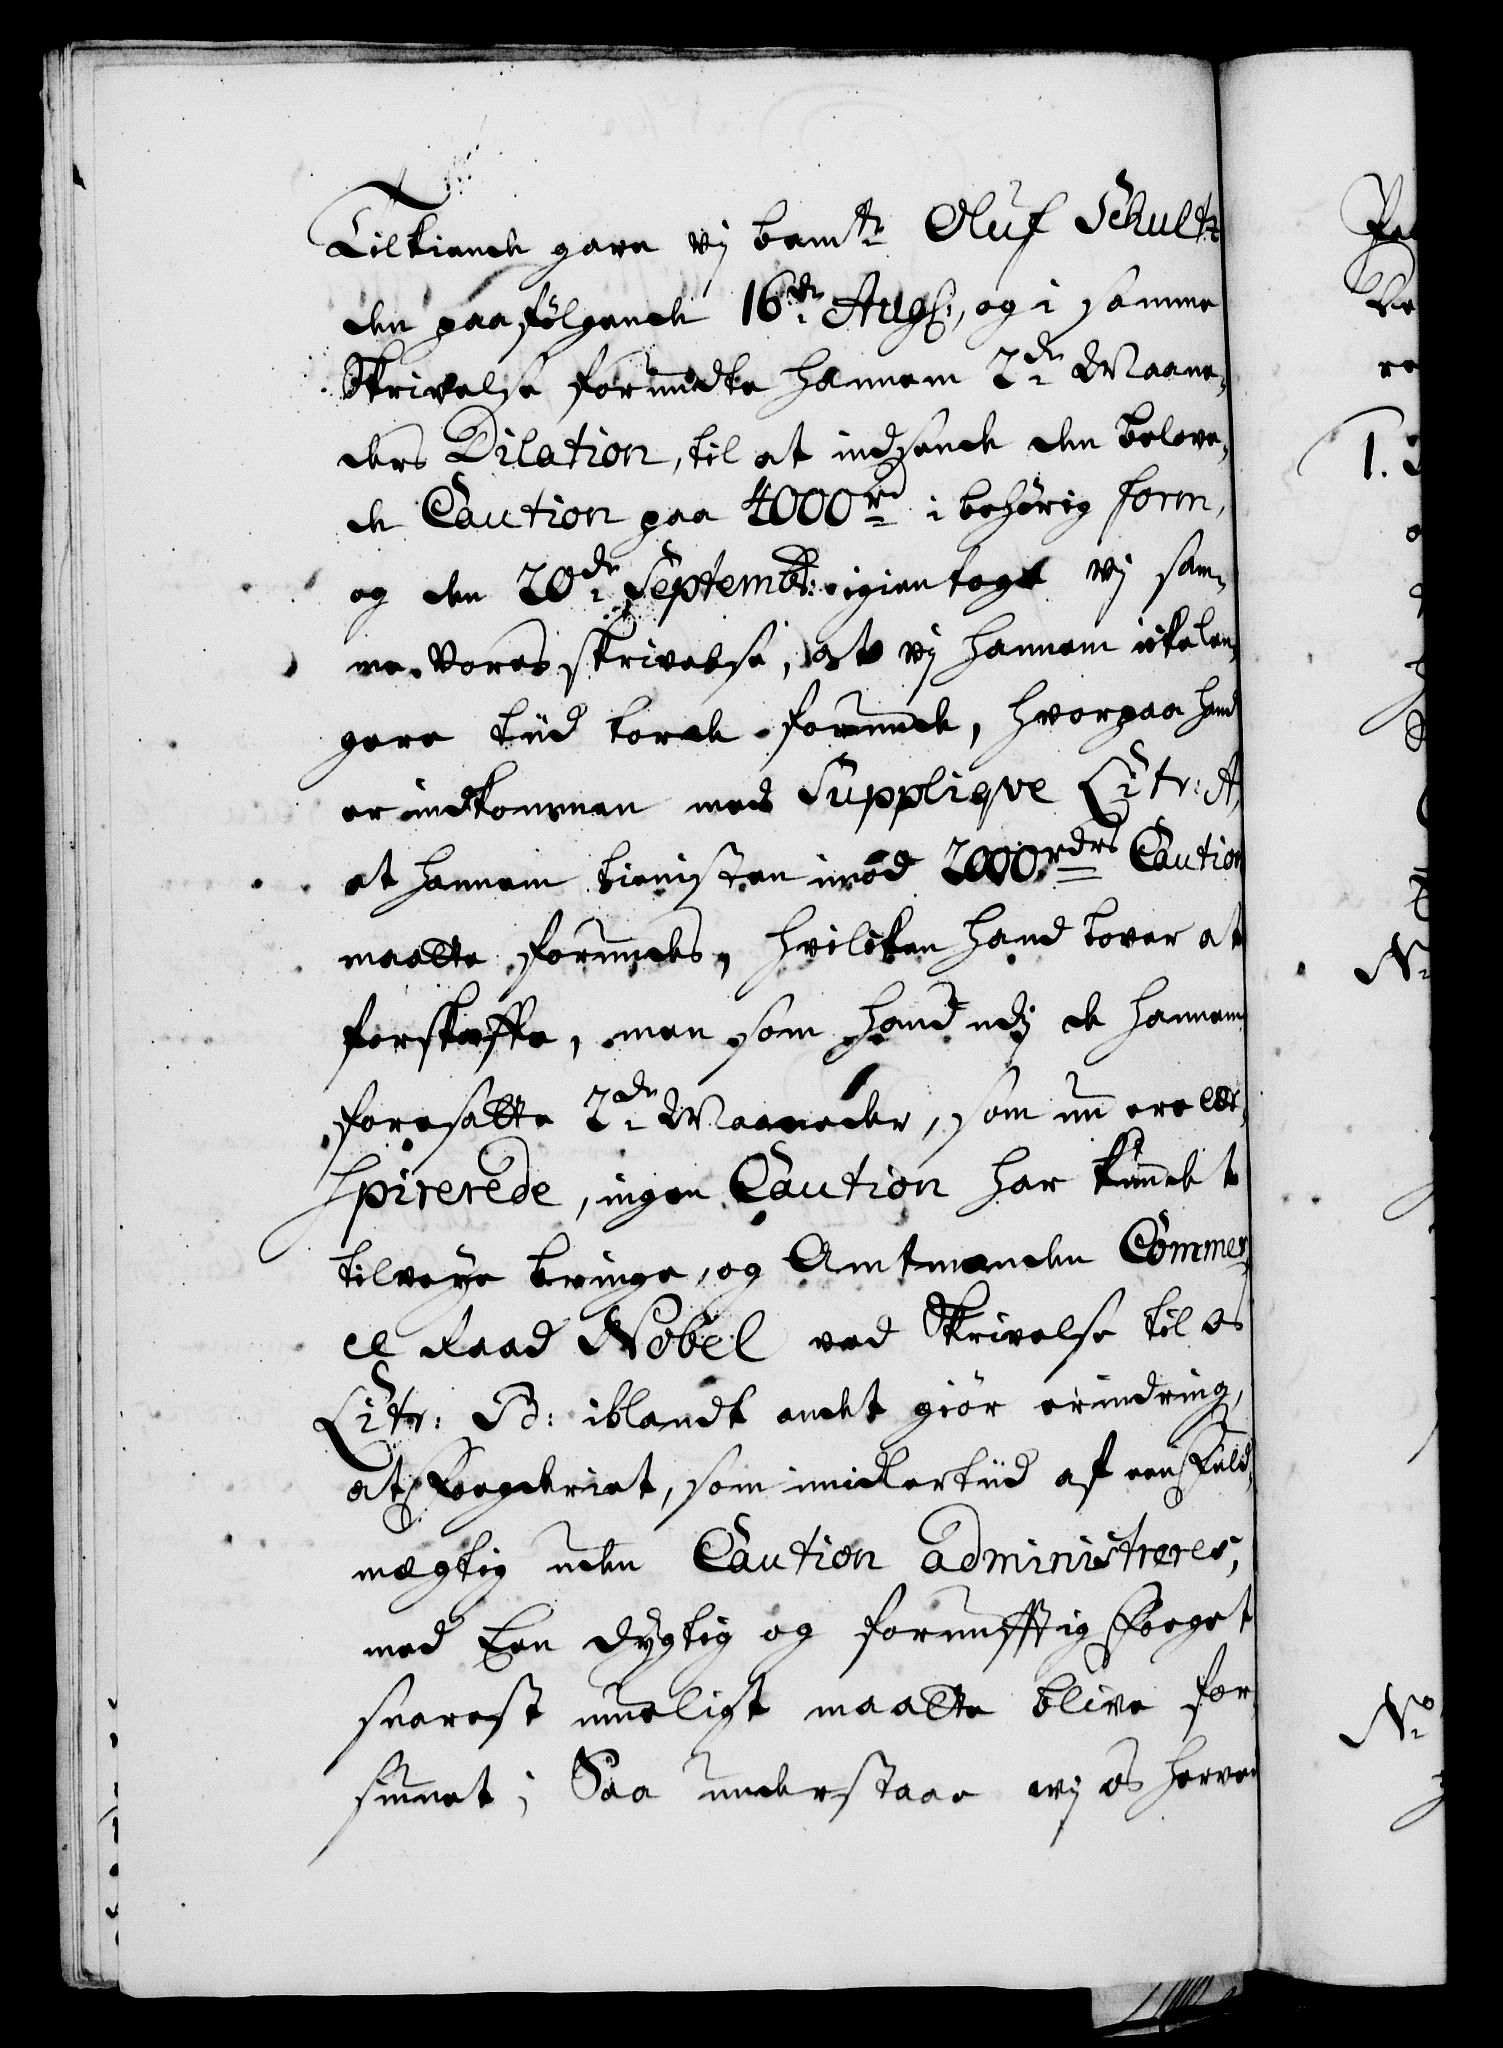 Tilkiende gave vj bemte Oluf Schultz
den paafölgende 16de Augs:, og i samme
Skrivelse forundte hannem 2de Maane,
ders Dilation, til at indsende den belove,
de Caution paa 4000rd i behörig form,
og den 20de Septembr: igientoge vj sam,
me Vores skrivelse, at vj hannem iche len,
gere tiid torde forunde, hvorpaa hand
er indkommen med Supplique Litr: A,
at hannem tienisten imod 2000rdrs Caution
maatte forundes, hvilcken hand lover at
forskaffe, men som hand udj de hannem
foresatte 2de Maaneder, som nu ere ex,
spirerede, ingen Caution har kundet
tilveye bringe, og Amtmanden Commer,
ce Raad Nobel ved Skrivelse til os
Litr: B: iblandt andet giör erindring,
at Fogderiet, som imidlertiid af een Fuld,
mægtig uden Caution administreres,
med Een dygtig og fornufftig Foeget
snarest mueligt maatte blive for,
siunet; Saa understaae wj os herved